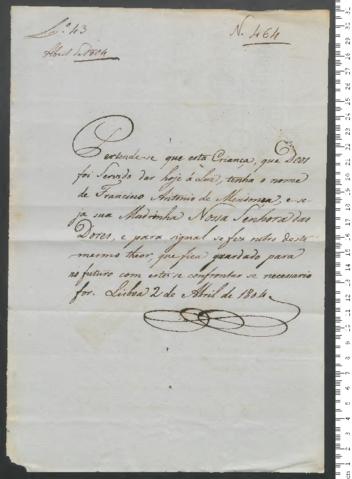 Lº 43
Abril de 1804
N. 464
Pertende-se que esta Criança, que Deos
foi Servido dar hoje à Luz, tenha o nome
de Francisco Antonio de, e se-
ja sua Madrinha Nossa Senhora das
Dores, e para signal se fez outro deste
mesmo theor, que fica guardado para
no futuro com este se confrontar se necessario
for. Lisboa 2 de Abril de 1804